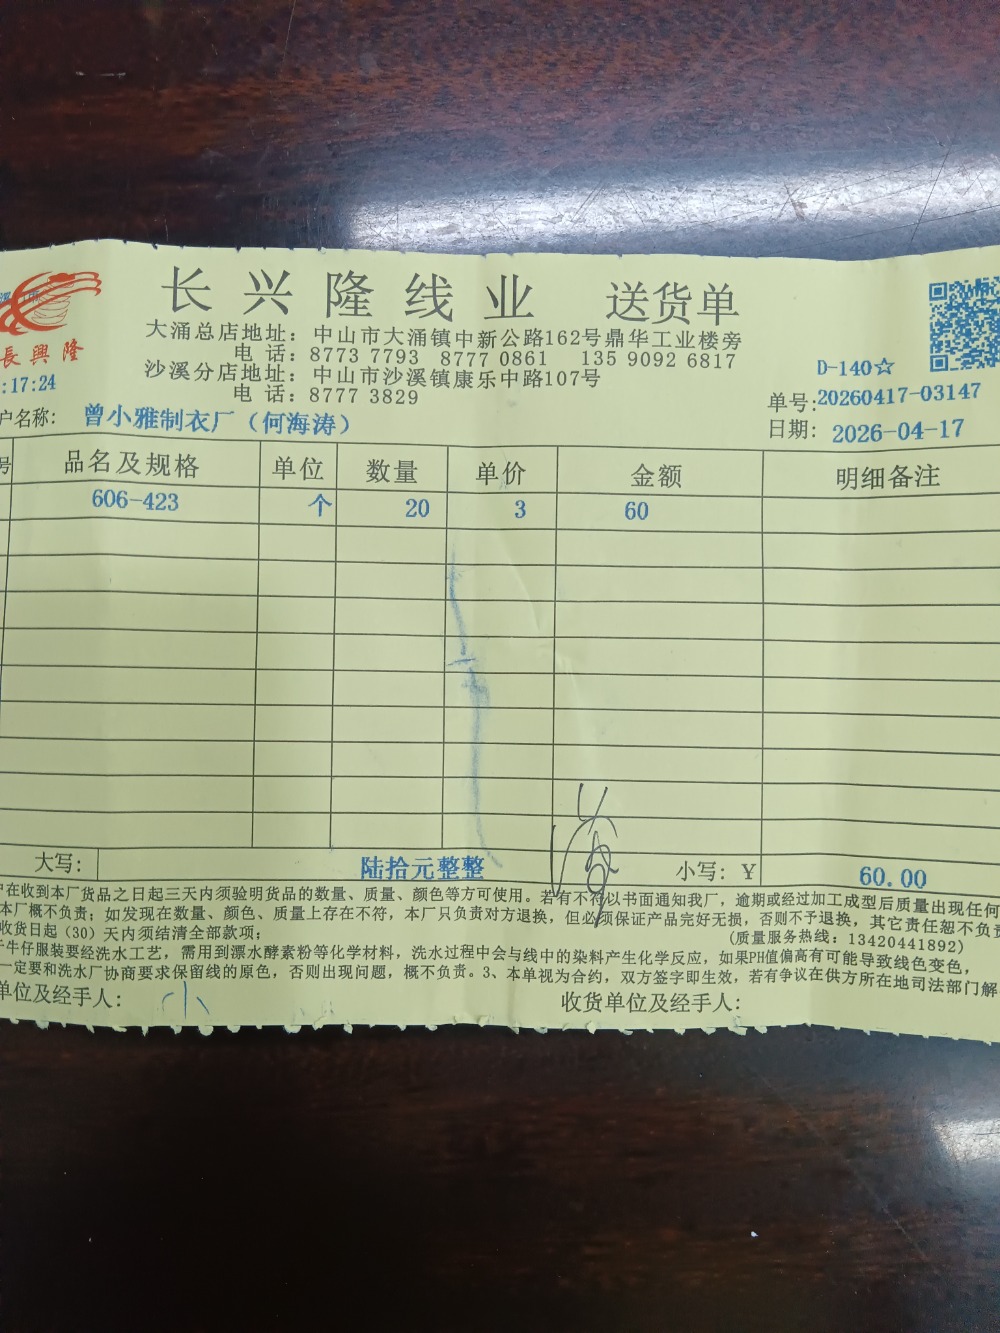 长兴隆线业 送货单
長興隆
大涌总店地址：中山市大涌镇中新公路162号鼎华工业楼旁
电 话：8773 7793 8777 0861 135 9092 6817
沙溪分店地址：中山市沙溪镇康乐中路107号
电 话：8777 3829
:17:24
D-140☆
单号:20260417-03147
户名称: 曾小雅制衣厂（何海涛）
日期: 2026-04-17
号 品名及规格 单位 数量 单价 金额 明细备注
606-423 个 20 3 60
大写: 陆拾元整整 小写: ￥ 60.00
户在收到本厂货品之日起三天内须验明货品的数量、质量、颜色等方可使用。若有不符以书面通知我厂，逾期或经过加工成型后质量出现任何
本厂概不负责；如发现在数量、颜色、质量上存在不符，本厂只负责对方退换，但必须保证产品完好无损，否则不予退换，其它责任恕不负责
收货日起（30）天内须结清全部款项； (质量服务热线：13420441892)
牛仔服装要经洗水工艺，需用到漂水酵素粉等化学材料，洗水过程中会与线中的染料产生化学反应，如果PH值偏高有可能导致线色变色，
一定要和洗水厂协商要求保留线的原色，否则出现问题，概不负责。3、本单视为合约，双方签字即生效，若有争议在供方所在地司法部门解
单位及经手人: 小 收货单位及经手人: